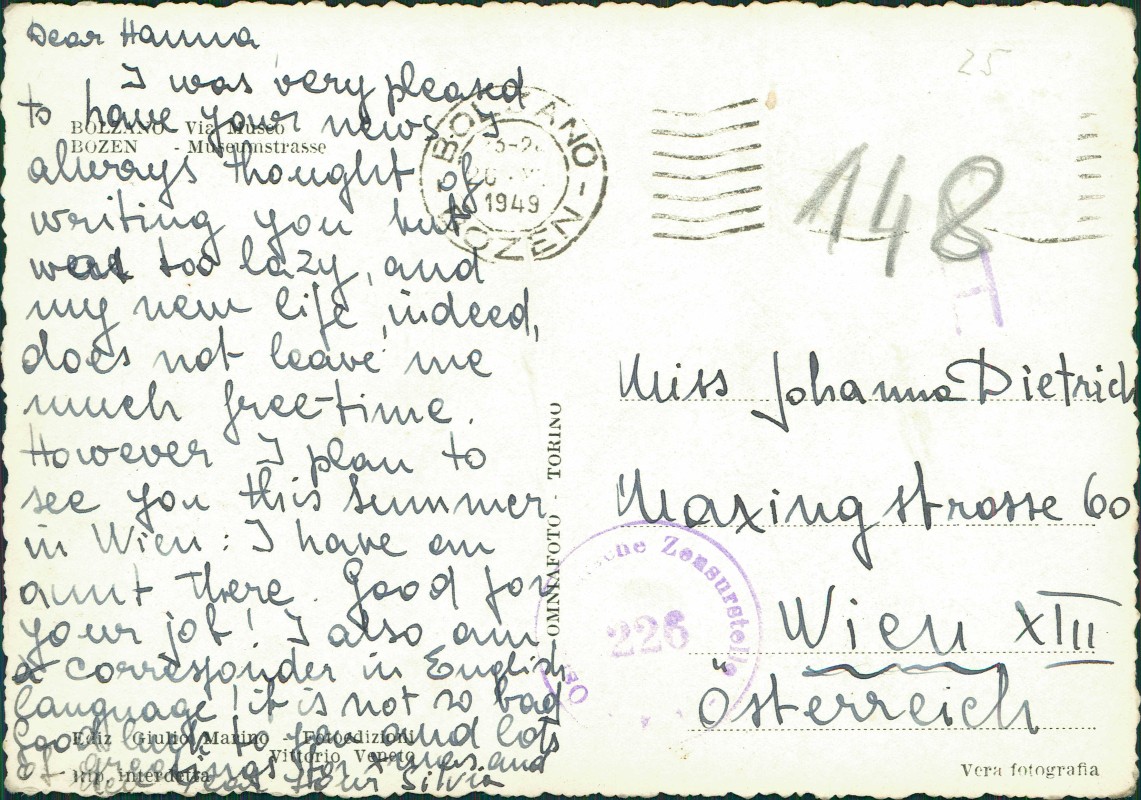 Dear Hanna
I was very pleased
to have your news I
always thought of
writing you but
was too lazy, and
my new life, indeed,
does not leave me
much free-time.
However I plan to
see you this summer
in Wien: I have an
aunt there. Good for
your job! I also am
a corresponder in English
language! it is not so bad
Good luck to you and lots
of greetings for X-mas and
new year from Silvia
BOLZANO Via Museo
BOZEN - Museumstrasse
BOLZANO - BOZEN
1949
25
148
H
Miss Johanna Dietrich
Maxing strasse 60
Wien XIII
Österreich
OMNIAFOTO - TORINO
Zensurstelle
226
Ediz Giulio Marino - Fotoedizioni
Vittorio Veneto
Rip. interdetta
Vera fotografia